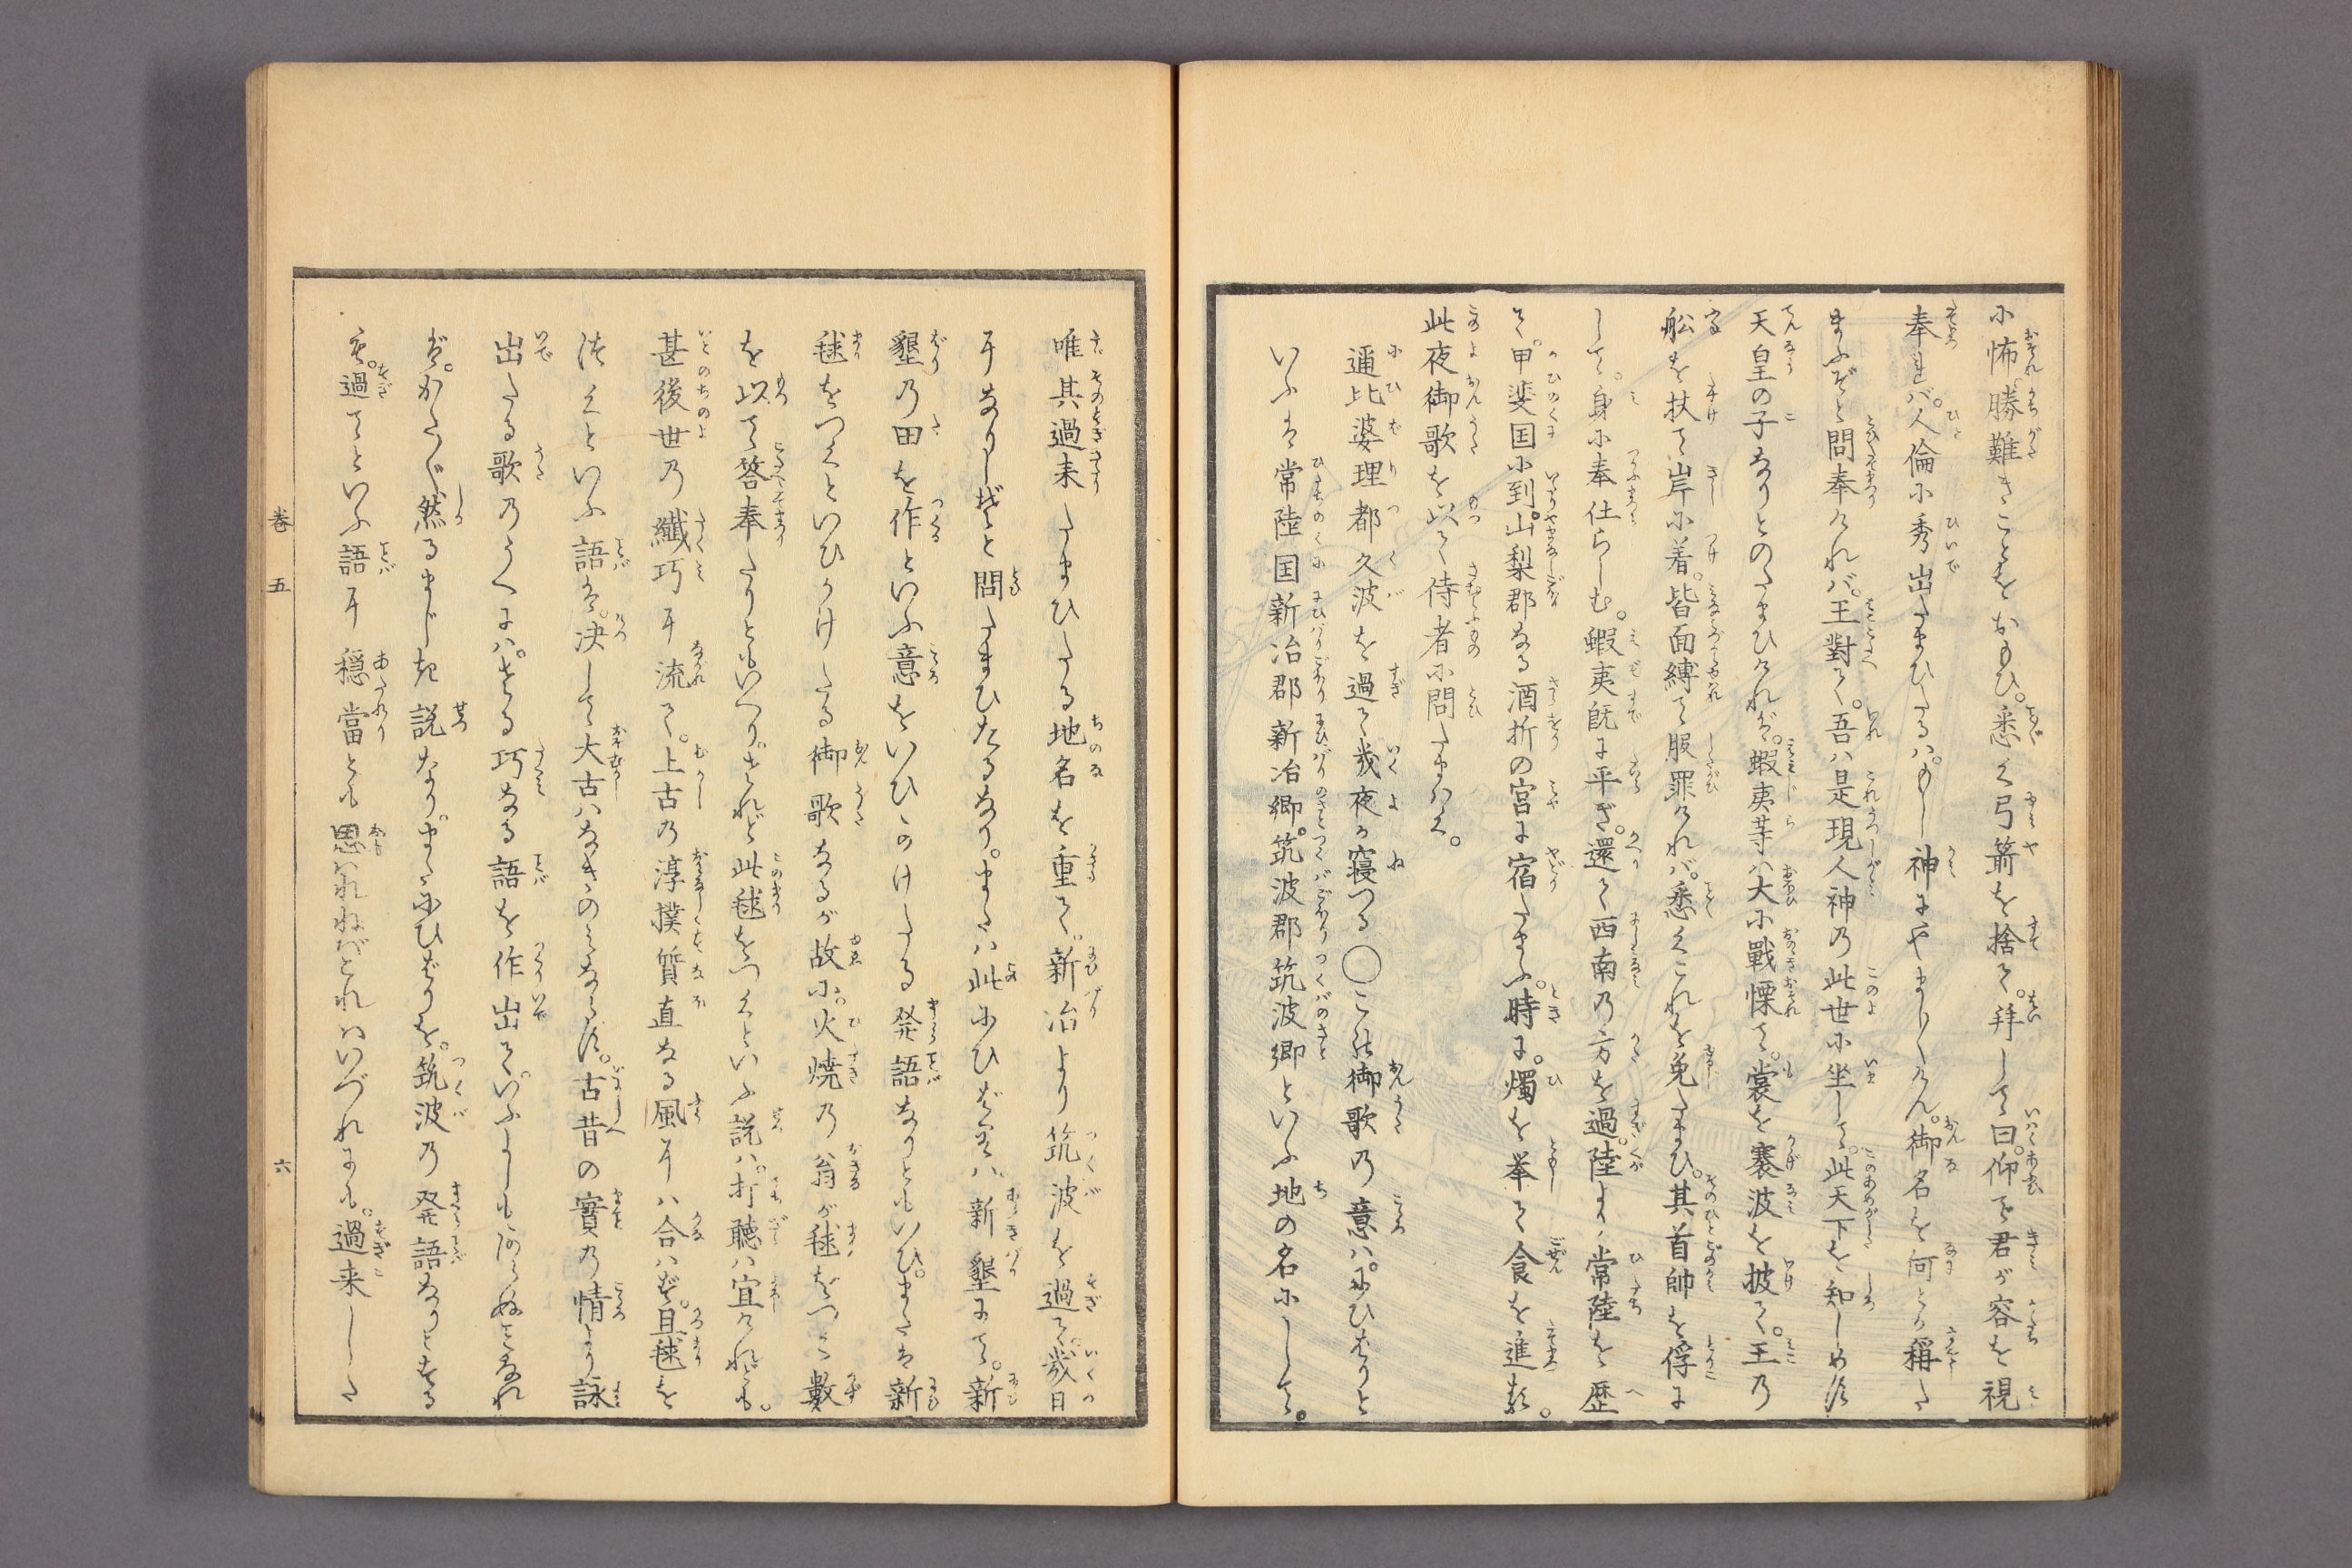 小怖勝難きことをおもひ。悉く弓箭を捨て。拝して曰。仰て君が容を視
奉れバ。人倫小秀出たまひたるハ。もし神にやまりけん。御名を何とか稱た
まふぞと問奉けれバ。王對て。吾ハ是現人神乃此世小坐して。此天下を知しめす
天皇の子なりとのたまひけれバ。蝦夷等ハ大小戰慄て。裳を褰波を披て。王乃
舩を扶て岸小着。皆面縛て服罪けれバ。悉くこれを免たまひ。其首帥を俘に
して。身小奉仕らしむ。蝦夷既に平ぎ。還て西南乃方を過。陸より常陸を歴
て。甲斐国小到。山梨郡なる酒折の宮に宿たまふ。時に。燭を挙て食を進む。
此夜御歌を以て侍者小問たまハく。
邇比婆理都久波を過て幾夜か寝つる○この御歌乃意ハ。にひばりと
いふは常陸国新治郡新治郷。筑波郡筑波郷といふ地の名小して。
唯其過来たまひたる地名を重て。新治より筑波を過て。幾日
になりしぞと問たまひたるなり。または此にひばりハ。新墾にて。新
墾乃田を作といふ意をいひかけたる発語なりともいひ。または新
毬をつくといひかけたる御歌なるが故小。火焼乃翁が毬をつく數
を以て答奉たりともいへり。されど此毬をつくといふ説ハ。打聴ハ宜けれども。
甚後世乃纖巧に流て。上古乃淳撲質直なる風にハ合ハず。且毬を
つくといふ語は。決して大古ハなきのみならず。古昔の實乃情より詠
出たる歌乃うへにハ。さる巧なる語を作出て。いふよしもあらぬことなれ
バ。かたがた然るまじき説なり。またにひばりを。筑波乃発語なりとする
も。過てといふ語に穏當とも思ハれねバとれハいづれにも。過来しした
巻五
六